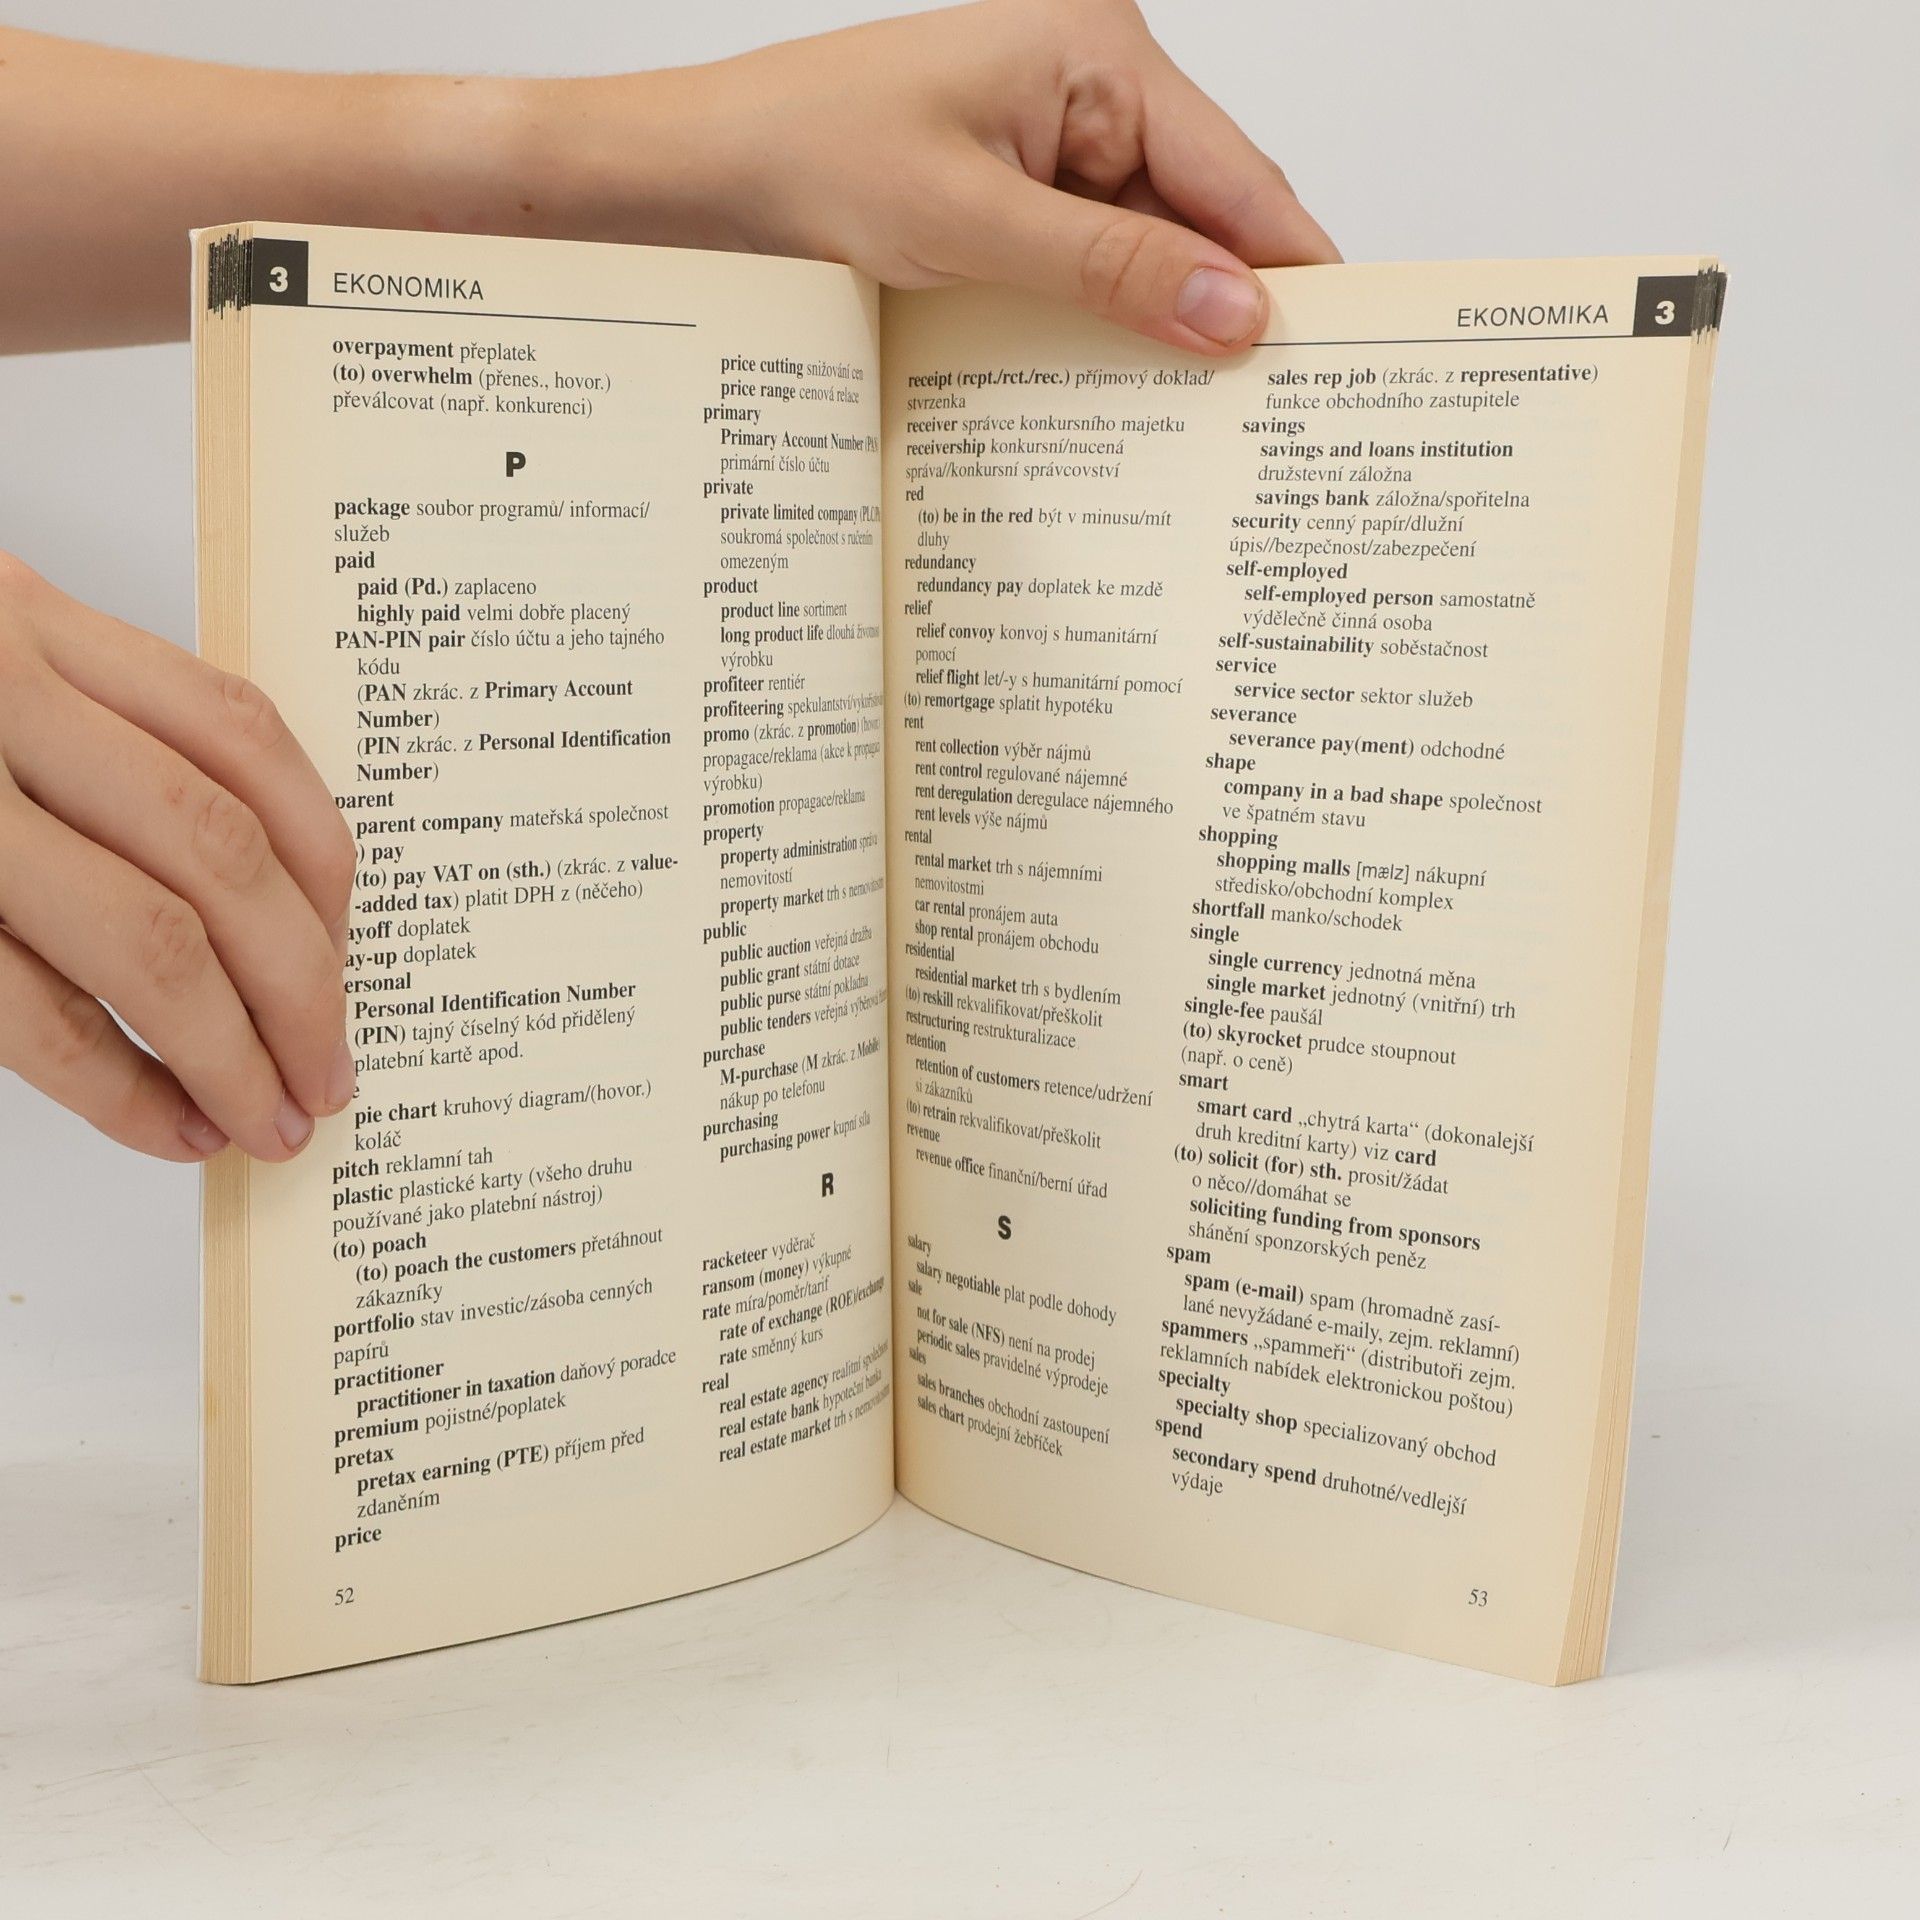 3 EKONOMIKA
overpayment přeplatek
(to) overwhelm (přenes., hovor.)
převálcovat (např. konkurenci)
P
package soubor programů/ informací/
služeb
paid
paid (Pd.) zaplaceno
highly paid velmi dobře placený
PAN-PIN pair číslo účtu a jeho tajného
kódu
(PAN zkrác. z Primary Account
Number)
(PIN zkrác. z Personal Identification
Number)
parent
parent company mateřská společnost
) pay
(to) pay VAT on (sth.) (zkrác. z value-
-added tax) platit DPH z (něčeho)
ayoff doplatek
ay-up doplatek
ersonal
Personal Identification Number
(PIN) tajný číselný kód přidělený
platební kartě apod.
e
pie chart kruhový diagram/(hovor.)
koláč
pitch reklamní tah
plastic plastické karty (všeho druhu
používané jako platební nástroj)
(to) poach
(to) poach the customers přetáhnout
zákazníky
portfolio stav investic/zásoba cenných
papírů
practitioner
practitioner in taxation daňový poradce
premium pojistné/poplatek
pretax
pretax earning (PTE) příjem před
zdaněním
price
52
price cutting snižování cen
price range cenová relace
primary
Primary Account Number (PAN
primární číslo účtu
private
private limited company
soukromá společnost s ručením
omezeným
product
product line sortiment
long product life dlouhá životnost
výrobku
profiteer rentiér
profiteering
promo (zkrác. z promotion) (hovor.)
propagace/reklama (akce k propagaci
výrobku)
promotion propagace/reklama
property
property administration správa
nemovitostí
property market trh s nemovitostmi
public
public auction veřejná dražba
public grant státní dotace
public purse státní pokladna
public tenders veřejná výběrová
purchase
M-purchase (M zkrác. z Mobile)
nákup po telefonu
purchasing
purchasing power kupní síla
R
racketeer vyděrač
ransom (money) výkupné
rate míra/poměr/tarif
rate of exchange (ROE)/exchange
rate směnný kurs
real
real estate agency realitní společnost
real estate bank hypoteční banka
real estate market trh s nemovitostmi
EKONOMIKA 3
receipt (rcpt./rct./rec.) příjmový doklad/
stvrzenka
receiver správce konkursního majetku
receivership konkursní/nucená
správa//konkursní správcovství
red
(to) be in the red být v minusu/mít
dluhy
redundancy
redundancy pay doplatek ke mzdě
relief
relief convoy konvoj s humanitární
pomocí
relief flight let/-y s humanitární pomocí
(to) remortgage splatit hypotéku
rent
rent collection výběr nájmů
rent control regulované nájemné
rent deregulation deregulace nájemného
rent levels výše nájmů
rental
rental market trh s nájemními
nemovitostmi
car rental pronájem auta
shop rental pronájem obchodu
residential
residential market trh s bydlením
(to) reskill rekvalifikovat/přeškolit
restructuring restrukturalizace
retention
retention of customers retence/udržení
si zákazníků
(to) retrain rekvalifikovat/přeškolit
revenue
revenue office finanční/berní úřad
S
salary
salary negotiable plat podle dohody
sale
not for sale (NFS) není na prodej
periodic sales pravidelné výprodeje
sales
sales branches obchodní zastoupení
sales chart prodejní žebříček
sales rep job (zkrác. z representative)
funkce obchodního zastupitele
savings
savings and loans institution
družstevní záložna
savings bank záložna/spořitelna
security cenný papír/dlužní
úpis//bezpečnost/zabezpečení
self-employed
self-employed person samostatně
výdělečně činná osoba
self-sustainability soběstačnost
service
service sector sektor služeb
severance
severance pay(ment) odchodné
shape
company in a bad shape společnost
ve špatném stavu
shopping
shopping malls [mælz] nákupní
středisko/obchodní komplex
shortfall manko/schodek
single
single currency jednotná měna
single market jednotný (vnitřní) trh
single-fee paušál
(to) skyrocket prudce stoupnout
(např. o ceně)
smart
smart card „chytrá karta“ (dokonalejší
druh kreditní karty) viz card
(to) solicit (for) sth. prosit/žádat
o něco//domáhat se
soliciting funding from sponsors
shánění sponzorských peněz
spam
spam (e-mail) spam (hromadně zasí-
lané nevyžádané e-maily, zejm. reklamní)
spammers „spammeři“ (distributoři zejm.
reklamních nabídek elektronickou poštou)
specialty
specialty shop specializovaný obchod
spend
secondary spend druhotné/vedlejší
výdaje
53